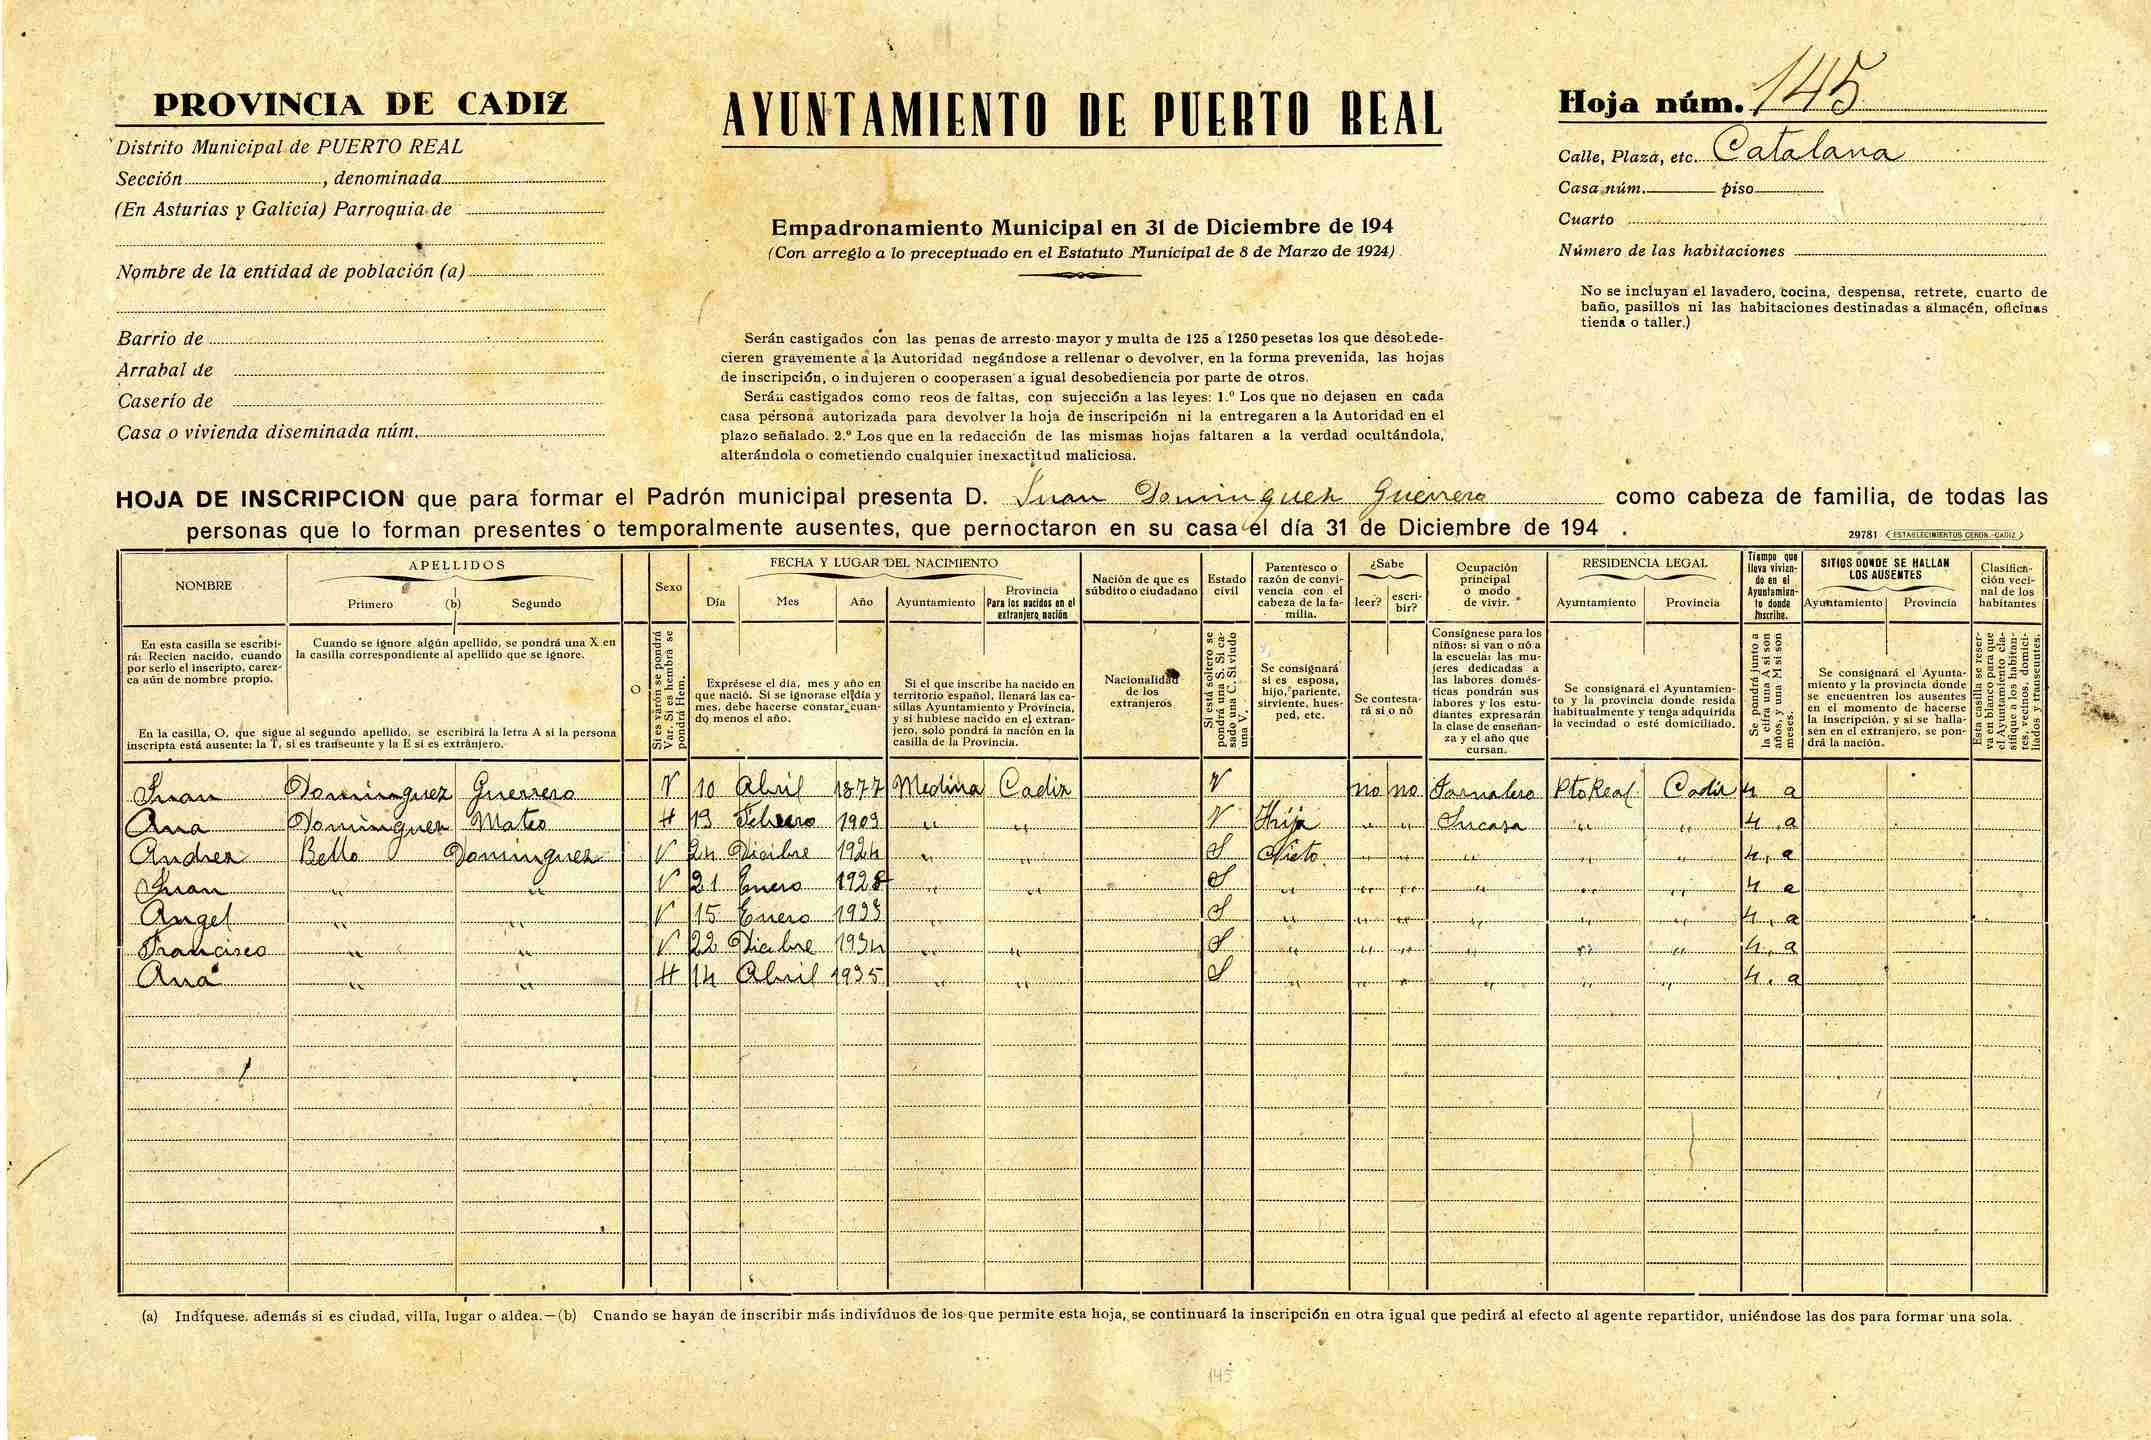 PROVINCIA DE CADIZ
Distrito Municipal de PUERTO REAL
Sección , denominada
(En Asturias y Galicia) Parroquia de
Nombre de la entidad de población (a)
Barrio de
Arrabal de
Caserío de
Casa o vivienda diseminada núm.
AYUNTAMIENTO DE PUERTO REAL
Empadronamiento Municipal en 31 de Diciembre de 194
(Con arreglo a lo preceptuado en el Estatuto Municipal de 8 de Marzo de 1924)
Serán castigados con las penas de arresto mayor y multa de 125 a 1250 pesetas los que desobede-
cieren gravemente a la Autoridad negándose a rellenar o devolver, en la forma prevenida, las hojas
de inscripción, o indujeren o cooperasen a igual desobediencia por parte de otros.
Serán castigados como reos de faltas, con sujección a las leyes: 1.º Los que no dejasen en cada
casa persona autorizada para devolver la hoja de inscripción ni la entregaren a la Autoridad en el
plazo señalado. 2.º Los que en la redacción de las mismas hojas faltaren a la verdad ocultándola,
alterándola o cometiendo cualquier inexactitud maliciosa.
Hoja núm. 145
Calle, Plaza, etc. Catalana
Casa núm. piso
Cuarto
Número de las habitaciones
No se incluyan el lavadero, cocina, despensa, retrete, cuarto de
baño, pasillos ni las habitaciones destinadas a almacén, oficinas
tienda o taller.)
HOJA DE INSCRIPCION que para formar el Padrón municipal presenta D. Juan Dominguez Guerrero como cabeza de familia, de todas las
personas que lo forman presentes o temporalmente ausentes, que pernoctaron en su casa el día 31 de Diciembre de 194 .
29781 (ESTABLECIMIENTOS CERON.-CADIZ)
NOMBRE
APELLIDOS
Primero (b) Segundo
Sexo
FECHA Y LUGAR DEL NACIMIENTO
Día Mes Año Ayuntamiento
Provincia
Para los nacidos en el
extranjero nación
Nación de que es
súbdito o ciudadano
Estado
civil
Parentesco o
razón de convi-
vencia con el
cabeza de la fa-
milia.
¿Sabe
leer? escri-
bir?
Ocupación
principal
o modo
de vivir.
RESIDENCIA LEGAL
Ayuntamiento Provincia
Tiempo que
lleva vivien-
do en el
Ayuntamien-
to donde
inscribe.
SITIOS DONDE SE HALLAN
LOS AUSENTES
Ayuntamiento Provincia
Clasifica-
ción veci-
nal de los
habitantes
En esta casilla se escribi-
rá: Recien nacido, cuando
por serlo el inscripto, carez-
ca aún de nombre propio.
Cuando se ignore algún apellido, se pondrá una X en
la casilla correspondiente al apellido que se ignore.
En la casilla, O, que sigue al segundo apellido, se escribirá la letra A si la persona
inscripta está ausente: la T, si es transeunte y la E si es extranjero.
O
Si es varón se pondrá
Var. Si es hembra se
pondrá Hem.
Exprésese el día, mes y año en
que nació. Si se ignorase el día y
mes, debe hacerse constar cuan-
do menos el año.
Si el que inscribe ha nacido en
territorio español, llenará las ca-
sillas Ayuntamiento y Provincia,
y si hubiese nacido en el extran-
jero, solo pondrá la nación en la
casilla de la Provincia.
Nacionalidad
de los
extranjeros
Si está soltero se
pondrá una S. Si ca-
sado una C. Si viudo
una V.
Se consignará
si es esposa,
hijo, pariente,
sirviente, hues-
ped, etc.
Se contesta-
rá si o nó
Consígnese para los
niños: si van o nó a
la escuela: las mu-
jeres dedicadas a
las labores domés-
ticas pondrán sus
labores y los estu-
diantes expresarán
la clase de enseñan-
za y el año que
cursan.
Se consignará el Ayuntamien-
to y la provincia donde resida
habitualmente y tenga adquirida
la vecindad o esté domiciliado.
Se pondrá junto a
la cifra una A si son
años, y una M si son
meses.
Se consignará el Ayunta-
miento y la provincia donde
se encuentren los ausentes
en el momento de hacerse
la inscripción, y si se halla-
sen en el extranjero, se pon-
drá la nación.
Esta casilla se reser-
va en blanco para que
el Ayuntamiento cla-
sifique a los habitan-
tes, vecinos, domici-
liados y transeuntes.
Juan Dominguez Guerrero V 10 Abril 1877 Medina Cadiz V no no Jornalero Pto Real Cadiz 4 a
Ana Dominguez Mateo H 13 Febrero 1903 " " V Hija " " Sucasa " " 4 a
Andrez Bello Dominguez V 24 Dicibre 1924 " " S Nieto " " " " " 4 a
Juan " " V 21 Enero 1928 " " S " " " " " " 4 a
Angel " " V 15 Enero 1933 " " S " " " " " " 4 a
Francisco " " V 22 Dicibre 1934 " " S " " " " " " 4 a
Ana " " H 14 Abril 1935 " " S " " " " " " 4 a
(a) Indíquese, además si es ciudad, villa, lugar o aldea.—(b) Cuando se hayan de inscribir más individuos de los que permite esta hoja, se continuará la inscripción en otra igual que pedirá al efecto al agente repartidor, uniéndose las dos para formar una sola.
145